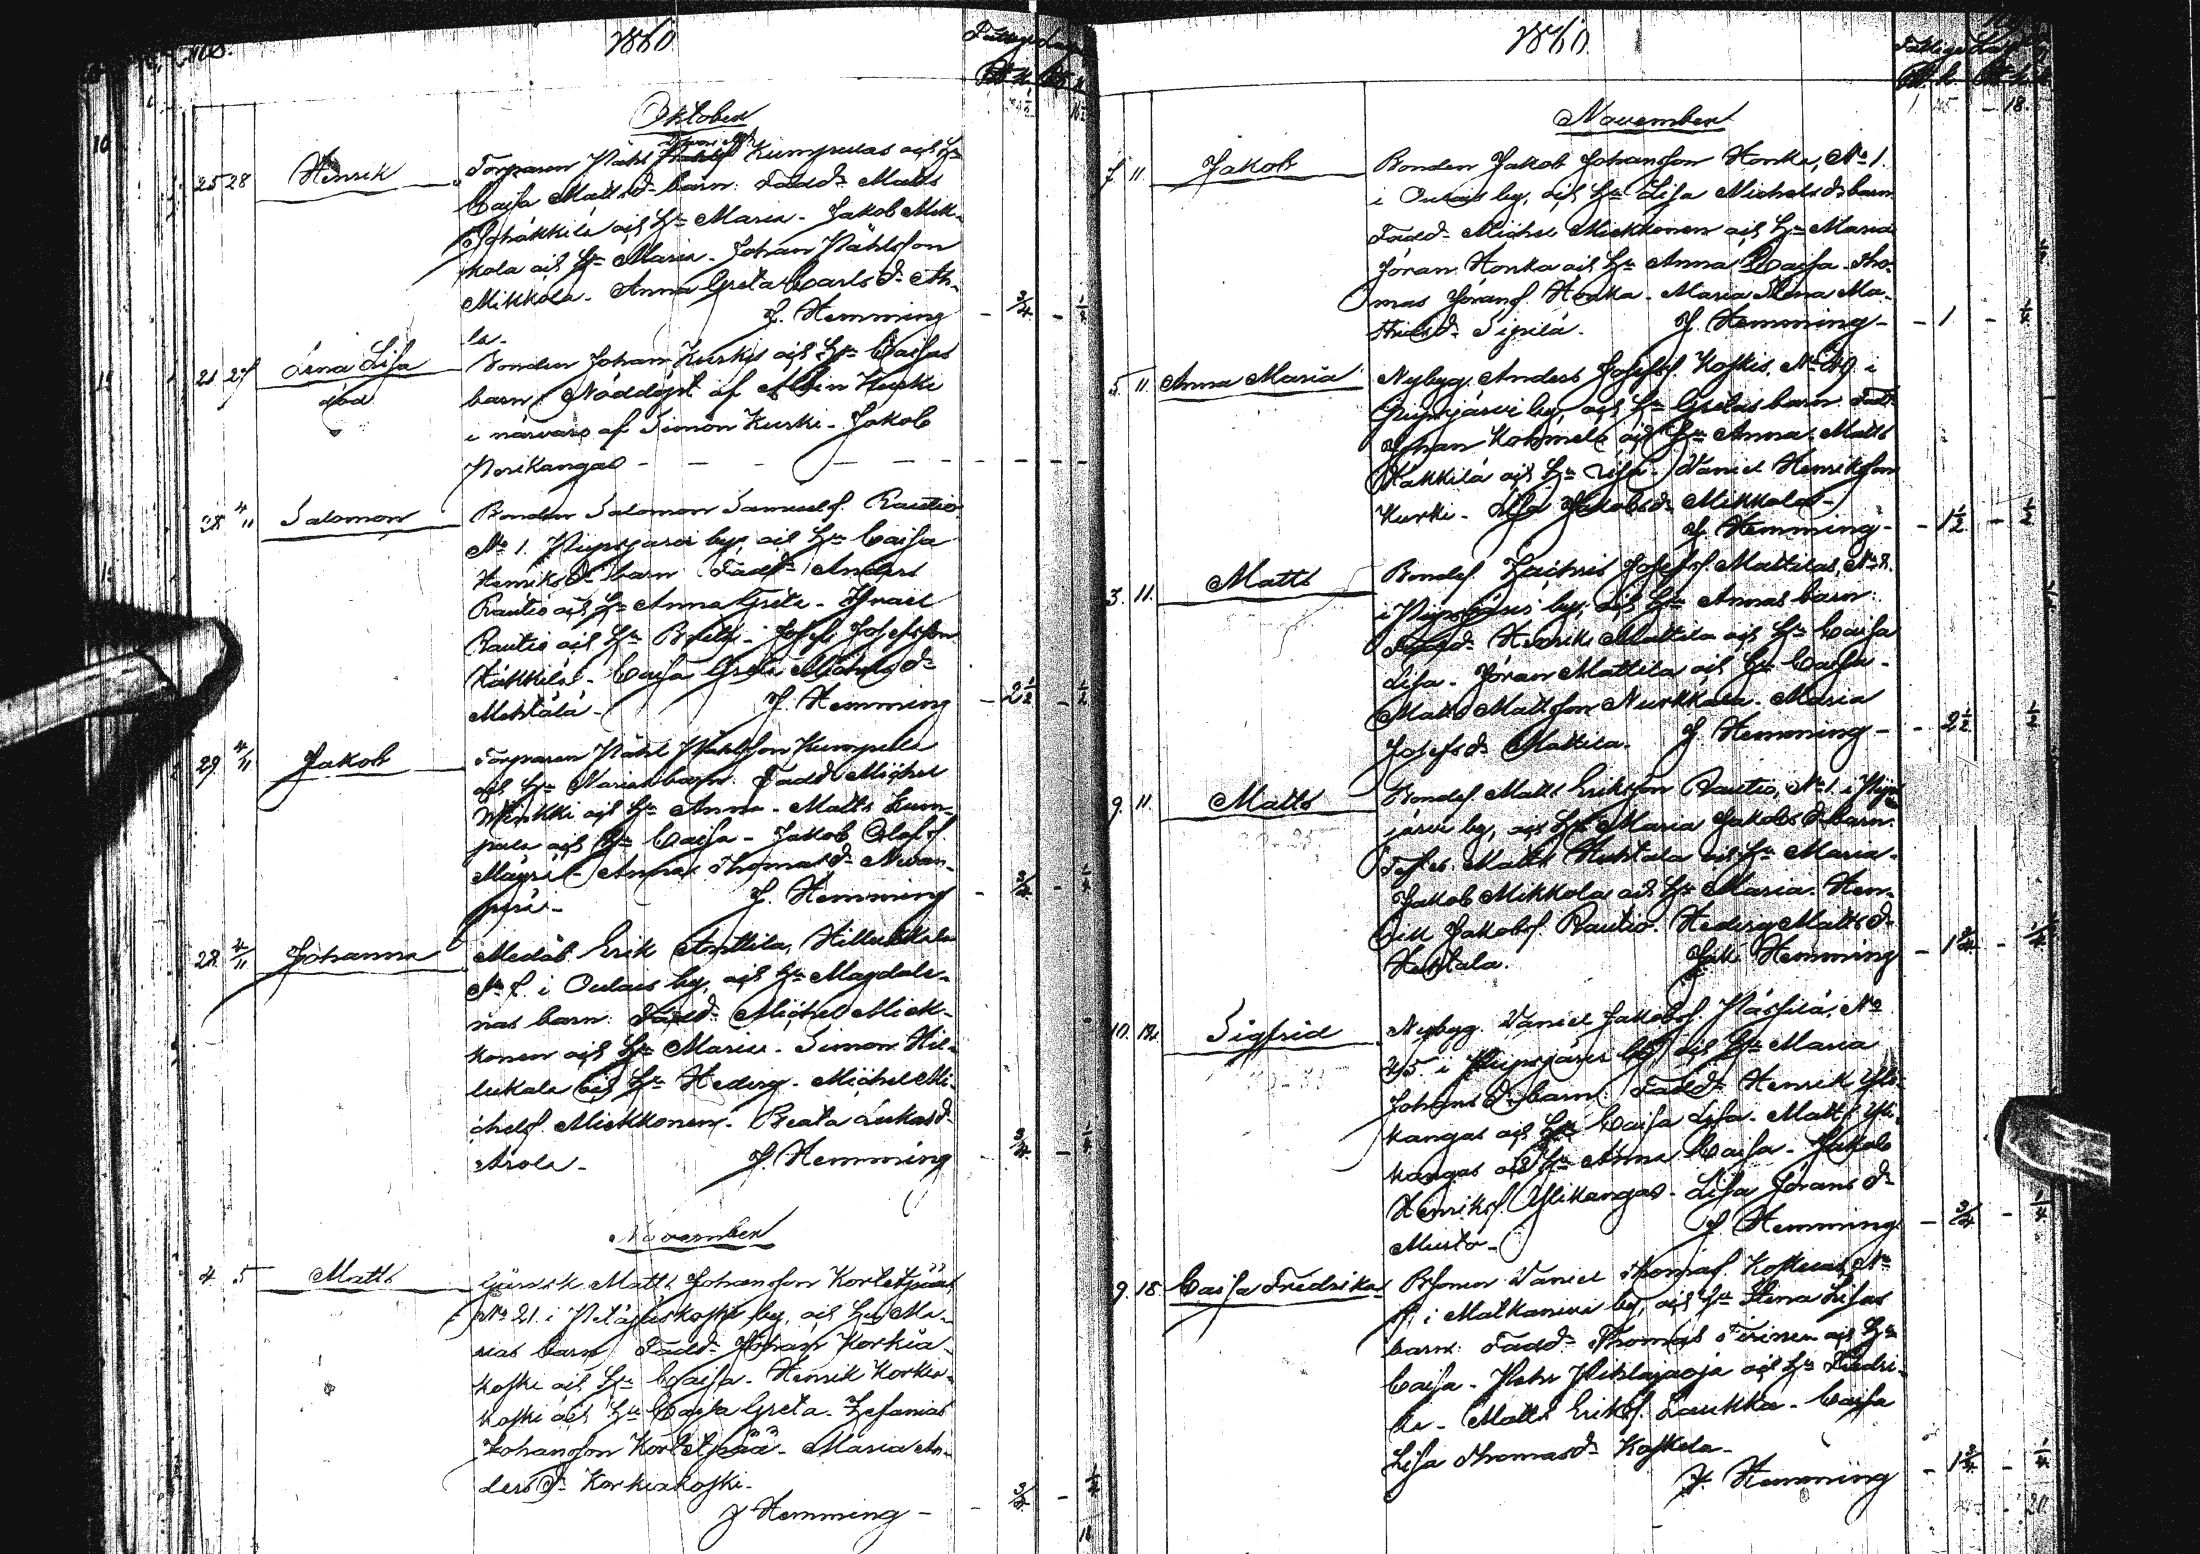 1860
Oktober
25 28 Henrik Torparen Påhl Kumpulas och H:u
Caisa Matts d:r barn: Fadd:r Matts
Häkkilä och H:u Maria - Jakob Mik-
kola och H:u Maria - Johan Påhlsson
Mikkola - Anna Greta Carls d:r Ah-
la -
J. Hemming - 3/4 - 1/4
21 27 Lena Lisa Bonden Johan Kurkis och H:u Caisas
död barn: Nöddöpt af Albin Kurki
i närvaro af Simon Kurki - Jakob
Porikangas
28 4/11 Salomon Bonden Salomon Samuelsf. Rautio
No 1. Piipsjärvi by, och H:u Caisa
Henriks d:r barn Fadd:r Anders
Rautio och H:u Anna Greta - Israel
Rautio och H:u Brita - Josef Josefsson
Häkkilä - Caisa Greta d:r
Mehtälä -
J. Hemming - 2 1/2 - 1/2
29 4/11 Jakob Torparen Påhl Påhlsson Kumpula
och H:u Marias barn: Fadd:r Michel
och H:u Anna - Matts Kum-
pula och H:u Caisa - Jakob Olofsf.
Mäyrä - Anna Thomas d:r Nivan-
perä -
J. Hemming - 3/4 - 1/4
28 4/11 Johanna Erik Anttila, Hillukkala
i Oulais by, och H:u Magdale-
nas barn: Fadd:r Michel Miek-
konen och H:u Maria - Simon Hil-
lukala och H:u Hedvig - Michel Mi-
chelsf. Miekkonen - Beata Lukas d:r
Arola -
J. Hemming 3/4 - 1/4
November
4 5 Matts Matts Johansson Kortetpää,
No 21. i Petäjäskoski by, och H:u Ma-
rias barn: Fadd:r Johan Korkia-
koski och H:u Caisa - Henrik Korkia-
koski och H:u Caisa Greta - Zefanias
Johansson Kortetpää - Maria An-
ders d:r Korkiakoski -
J Hemming - 3/4 - 1/4
18
1860
18.
November
7 11 Jakob Bonden Jakob Johansson Honka, No 1.
i Oulais by, och H:u Lisa Michels d:r barn
Fadd:r Michel Miekkonen och H:u Maria
Jöran Honka och H:u Anna Caisa - Tho-
mas Jöransf. Honka - Maria Stina Ma-
thias d:r Sipilä.
J. Hemming - 1 - 1/4
5 11. Anna Maria Nybygg. Anders Josefsf. Koskis, No i
Piipsjärvi by, och H:u Gretas barn Fadd:r
Johan och H:u Anna - Matts
Häkkilä och H:u Lisa - Daniel Henriksson
Kurki - Lisa Jakobs d:r Mikkola -
J. Hemming - 1 1/2 - 1/2
3. 11. Matts Bondes. Zachris Josefsf. Mattilas, No 2.
i Piipsjärvi by, och H:u Annas barn:
Fadd:r Henrik Mattila och H:u Caisa
Lisa - Jöran Mattila och H:u Caisa -
Matts Mattsson Nurkkala - Maria
Josefs d:r Mattila.
J. Hemming - 2 1/2 1/2
9. 11. Matts Bondes. Matts Eriksson Rautio, No 1. i Piips
järvi by, och H:u Maria Jakobs d:r barn.
Test:s Matts Huhtala och H:u Maria -
Jakob Mikkola och H:u Maria. Hen-
rik Jakobsf. Rautio. Hedvig Matts d:r
Huhtala.
Jak. Hemming - 1 3/4 - 1/4
10. Sigfrid Nybygg. Daniel Jakobsf. No
45 i Piipsjärvi by, och H:u Maria
Johans d:r barn. Fadd:r Henrik Yli-
kangas och H:u Caisa Lisa - Matts Yli-
kangas och H:u Anna Caisa - Jakob
Henriksf. Ylikangas - Lisa Jörans d:r
Musto -
J Hemming - 3/4 - 1/4
9. 18. Caisa Fredrika Daniel Thomasf. Koskelas, No
i Matkaniva by, och H:u Stina Lisas
barn: Fadd:r Thomas och H:u
Caisa - Petter Pihlajaoja och H:u Fredri-
ka - Matts Eriksf. Laukka - Caisa
Lisa Thomas d:r Koskela -
J. Hemming - 1 3/4 - 1/4
20.